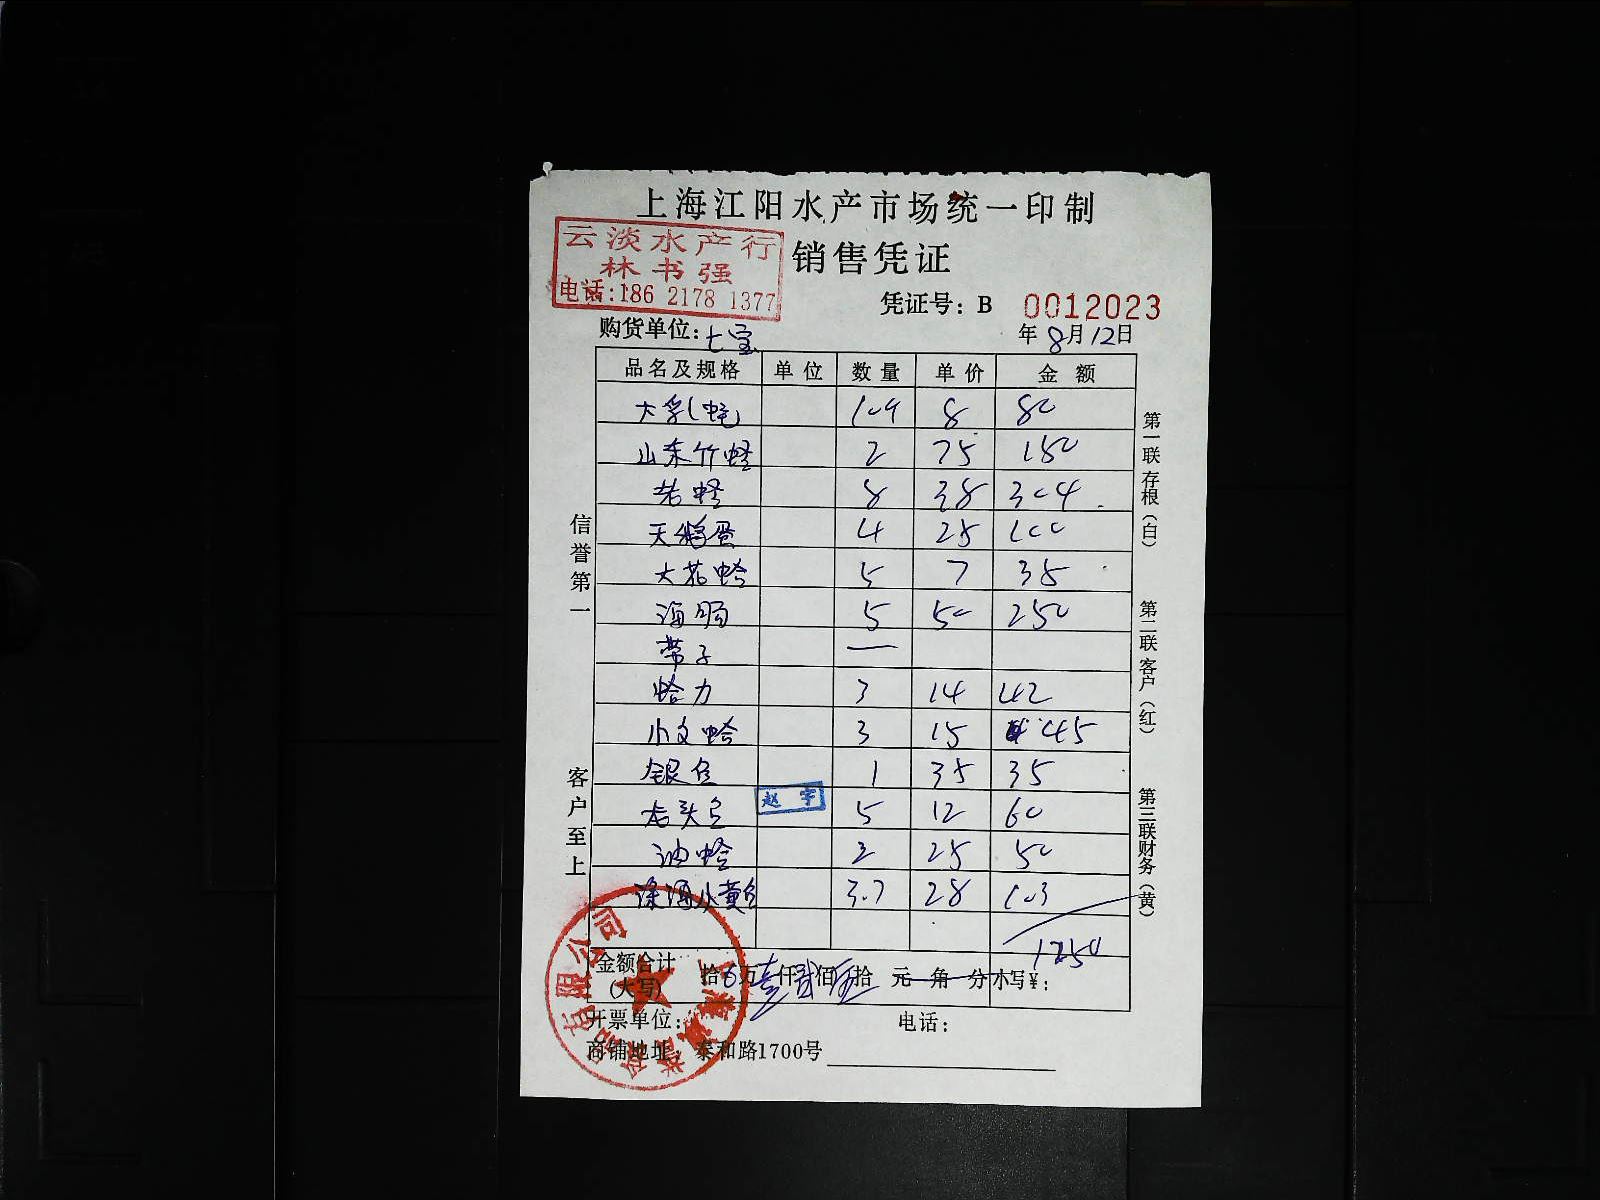 上海江阳水产市场统一印制
云淡水产行
林书强
电话:186 2178 1377
销售凭证
凭证号: B 0012023
购货单位: 七宝
年 8月12日
品名及规格 单位 数量 单价 金额
大 8 80
山东竹蛏 2 75 150
蛏 8 38 304
天鹅蛋 4 25 100
大花蛤 5 7 35
海肠 5 50 250
带子 —
蛤力 3 14 42
小文蛤 3 15 45
银鱼 1 35 35
龙头鱼 赵宇 5 12 60
油蛤 2 25 50
深海小黄鱼 3.7 28 103
1250
金额合计
(大写)
拾 万壹仟贰佰伍拾 元 角 分 小写¥:
开票单位: 电话:
商铺地址: 泰和路1700号
信誉第一
客户至上
第一联存根(白)
第二联客户(红)
第三联财务(黄)
有限公司